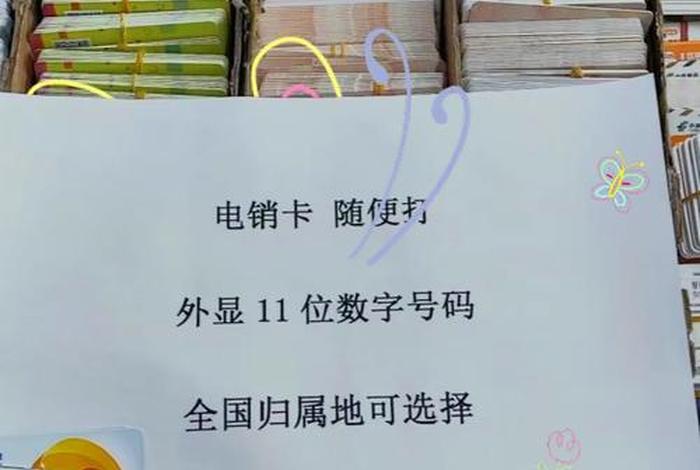 电销卡 随便打
外显 11 位数字号码
全国归属地可选择